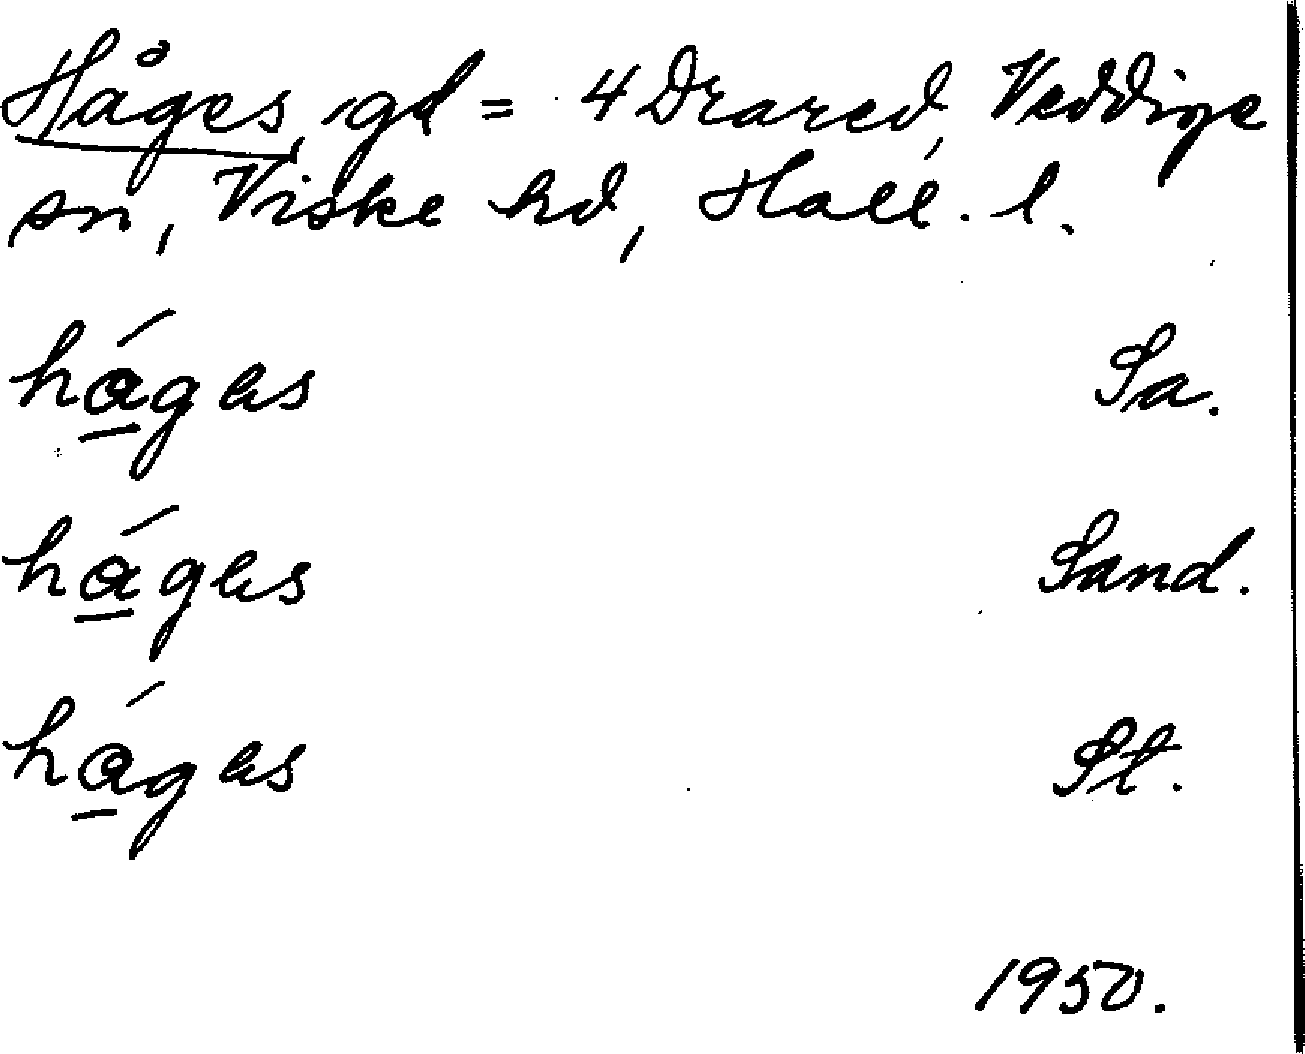 Håges, gd = 4 Drared, Veddige
sn, Viske hd, Hall. l.
hágəs Sa.
hágəs Sand.
hágəs St.
1950.